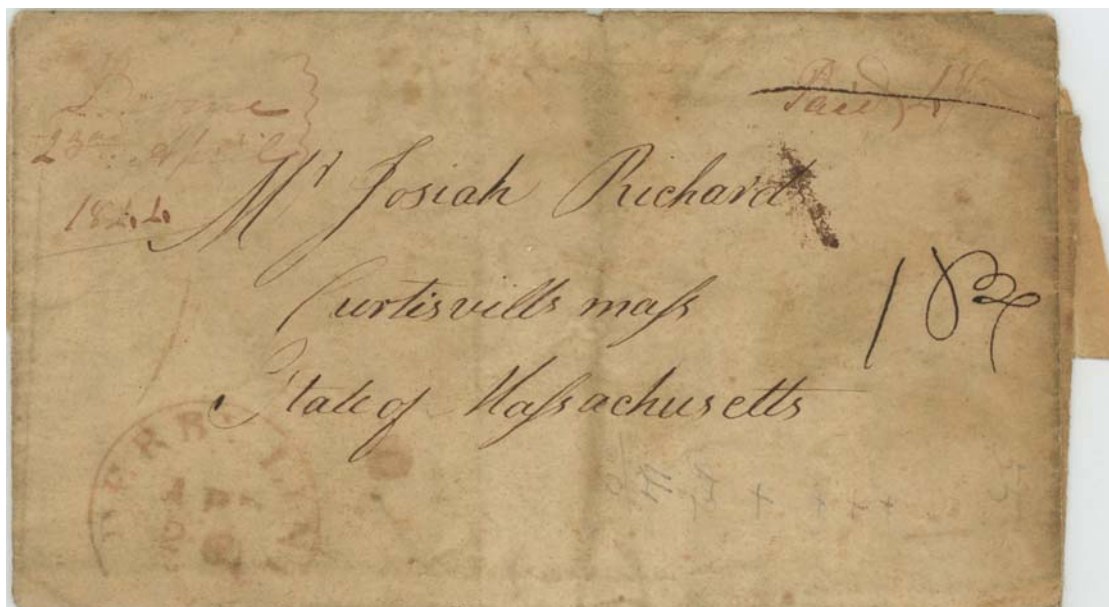 23rd April
1844
Paid 4½
Mr Josiah Richards
Curtisvills maſs
State of Maſsachusetts
18¾